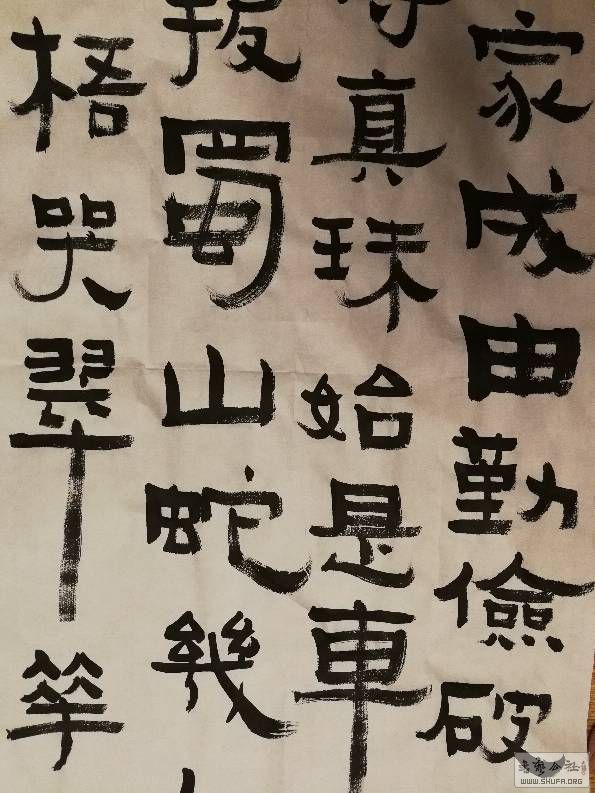 家成由勤儉破
真珠始是車
拔蜀山蛇幾
梧哭翠華
WWW.SHUFA.ORG